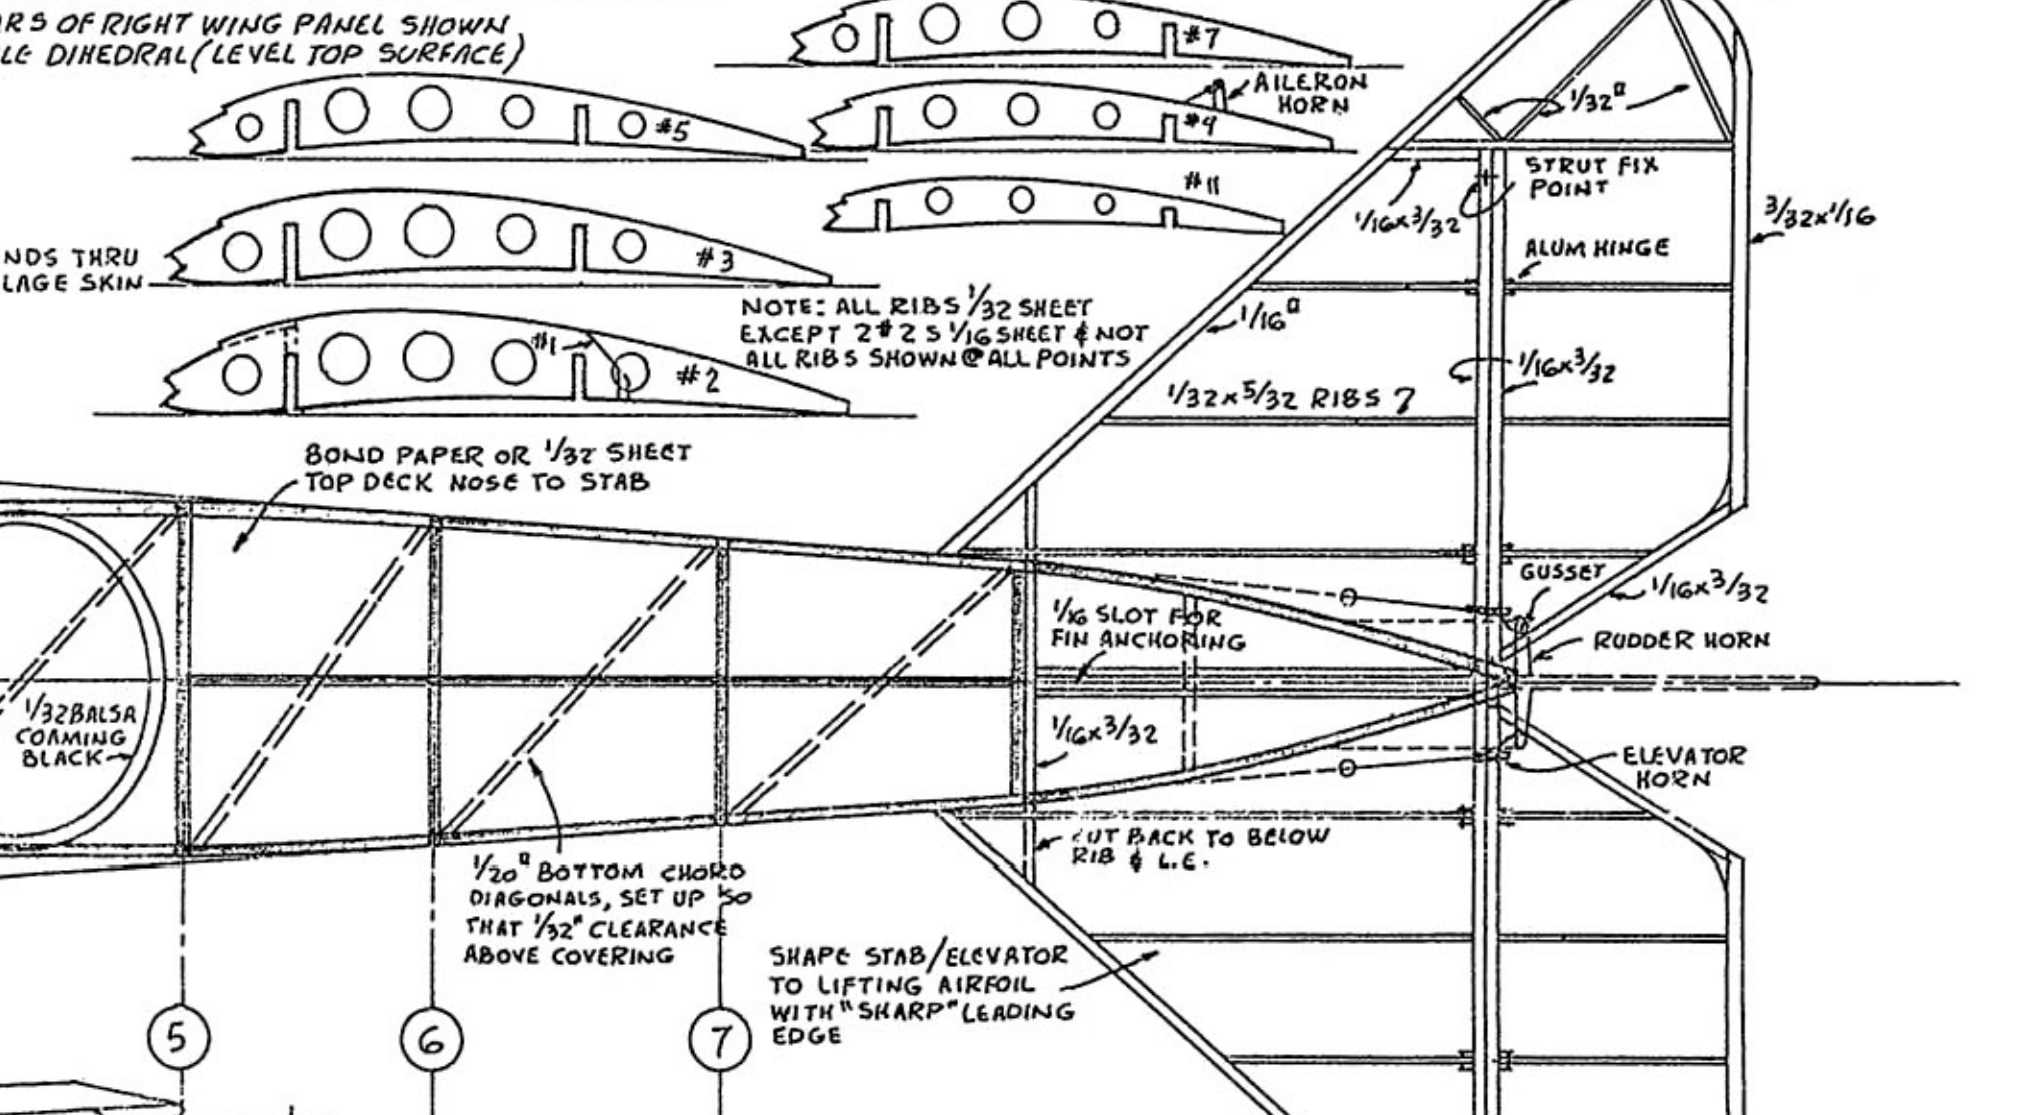 ARS OF RIGHT WING PANEL SHOWN
LE DIHEDRAL (LEVEL TOP SURFACE)
#5
#7
AILERON
HORN
#9
#11
#3
NDS THRU
LAGE SKIN
#1
#2
NOTE: ALL RIBS 1/32 SHEET
EXCEPT 2 #2 S 1/16 SHEET & NOT
ALL RIBS SHOWN @ ALL POINTS
1/32"
STRUT FIX
POINT
1/16x3/32
3/32x1/16
ALUM HINGE
1/16"
1/16x3/32
1/32x5/32 RIBS 7
BOND PAPER OR 1/32 SHEET
TOP DECK NOSE TO STAB
GUSSET
1/16x3/32
1/16 SLOT FOR
FIN ANCHORING
RUDDER HORN
1/32 BALSA
COAMING
BLACK
1/16x3/32
ELEVATOR
HORN
CUT BACK TO BELOW
RIB & L.E.
1/20" BOTTOM CHORD
DIAGONALS, SET UP SO
THAT 1/32" CLEARANCE
ABOVE COVERING
SHAPE STAB/ELEVATOR
TO LIFTING AIRFOIL
WITH "SHARP" LEADING
EDGE
5
6
7